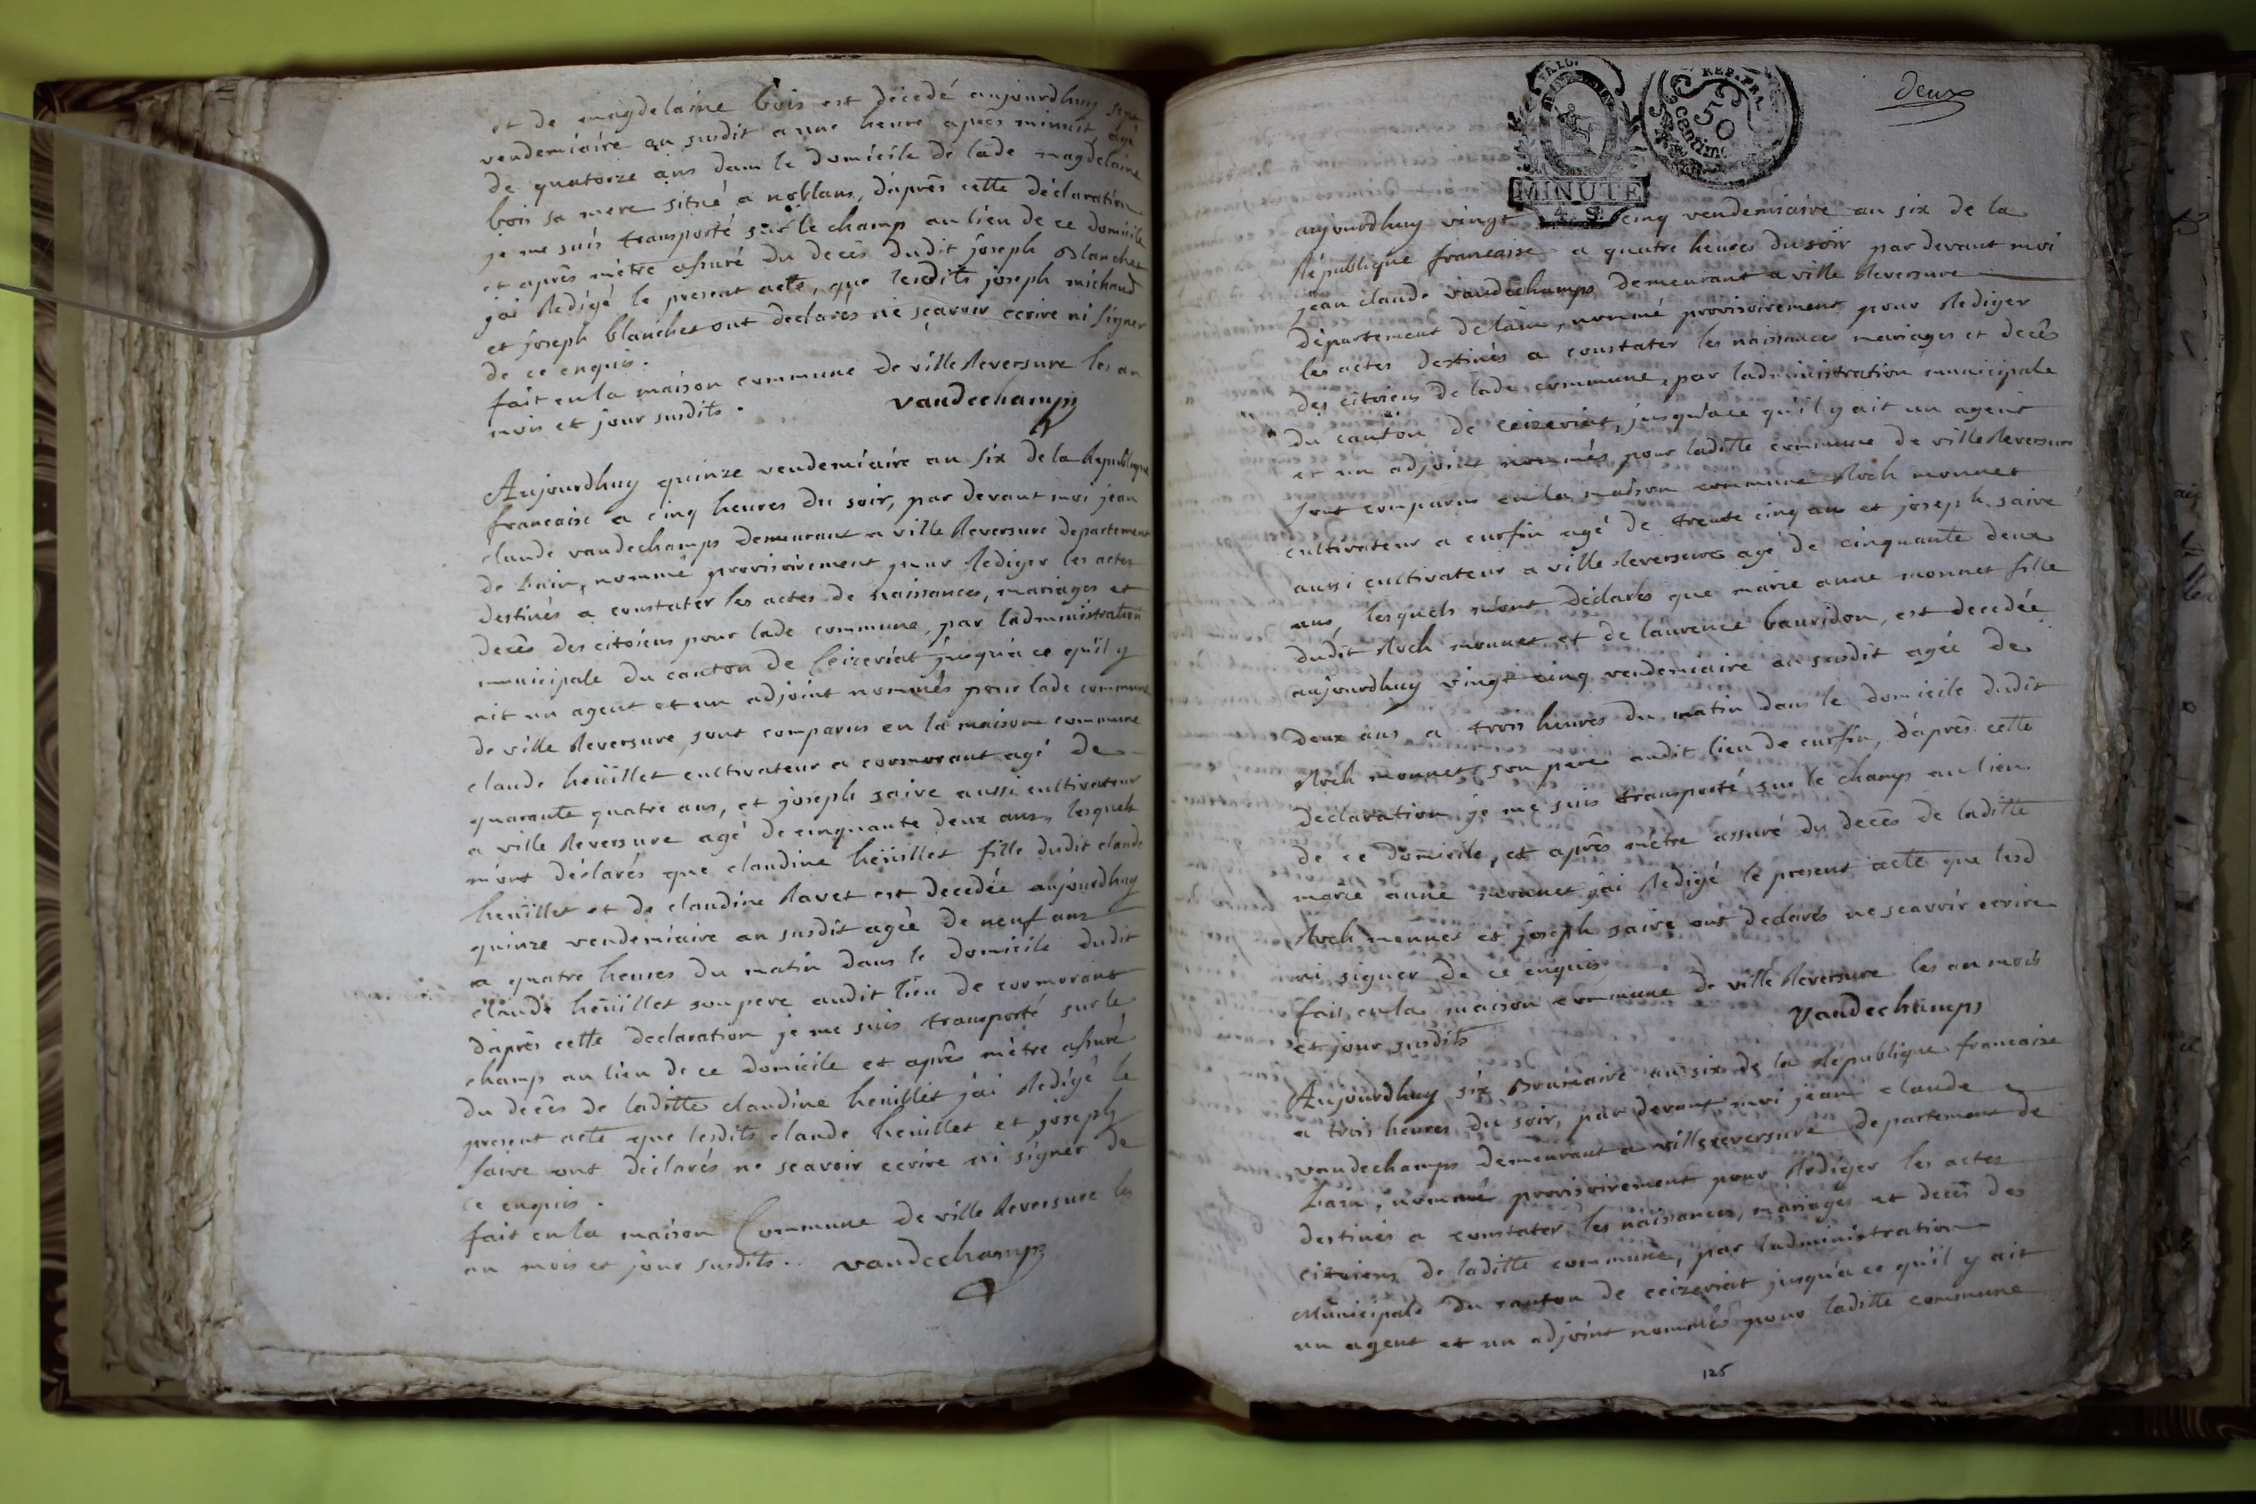 et de magdelaine bois est décedé aujourdhuy sept
vendemiaire an susdit a une heure apres minuit agé
de quatorze ans dans le domicile de lade magdelaine
bois sa mere situé a noblans, d'aprês cette déclaration
je me suis transporté sur le champ au lieu de ce domicile
et aprês m'être assuré du decês dudit joseph Blanchet
j'ai Redigé le present acte, que lesdits joseph michaud
et joseph blanchet ont declarés ne sçavoir ecrire ni signer
de ce enquis.
fait en la maison commune de ville Reversure les an
mois et jour susdits.
vandechamps
Aujourdhuy quinze vendemiaire an six de la Republique
francaise a cinq heures du soir, par devant moi jean
claude vandechamps demeurant a ville Reversure departement
de Lain, nommé provisoirement pour Rediger les actes
destinés a constater les actes de naissances, mariages et
decês des citoiens pour lade commune, par l'administration
municipale du canton de Ceizeriat jusqu'a ce qu'il y
ait un agent et un adjoint nommés pour lade commune
de ville Reversure, sont comparus en la maison commune
claude heüillet cultivateur a cormorant agé de
quarante quatre ans, et joseph saive aussi cultivateur
a ville Reversure agé de cinquante deux ans, lesquels
m'ont déclarés que claudine heüillet fille dudit claude
heüillet et de claudine Ravet est decedée aujourdhuy
quinze vendemiaire an susdit agée de neuf ans
a quatre heures du matin dans le domicile dudit
claude heüillet son pere audit lieu de cormorant
d'aprês cette declaration je me suis transporté sur le
champ au lieu de ce domicile et aprês m'être assuré
du decês de laditte claudine heüillet j'ai Redigé le
present acte que lesdits claude heüillet et joseph
saive ont déclarés ne scavoir ecrire ni signer de
ce enquis.
fait en la maison Commune de ville Reversure les
an mois et jour susdits. vandechamps
deux
REP. FRA.
50
centim.
MINUTE
aujourdhuy vingt cinq vendemiaire an six de la
République francaise a quatre heures du soir par devant moi
jean claude vandechamps demeurant a ville Reversure
département de lain, nommé provisoirement pour Rediger
les actes destinés a constater les naissances mariages et decês
des citoiens de lade commune, par ladministration municipale
du canton de ceizeriat, jusqu'a ce qu'il y ait un agent
et un adjoint nommés pour laditte commune de ville Reversure
sont comparus en la maison commune Roch monnet
cultivateur a curfin agé de trente cinq ans et joseph saive
aussi cultivateur a ville Reversure agé de cinquante deux
ans, lesquels m'ont déclarés que marie anne monnet fille
dudit Roch monnet et de laurence bauridon, est decedée
aujourdhuy vingt cinq vendemiaire an susdit agée de
deux ans a trois heures du matin dans le domicile dudit
Roch monnet son pere audit lieu de curfin, d'aprês cette
déclaration je me suis transporté sur le champ au lieu
de ce domicile, et aprês m'être assuré du decês de laditte
marie anne monnet j'ai Redigé le present acte que lesd
Roch monnet et joseph saive ont declarés ne scavoir ecrire
ni signer de ce enquis
fait en la maison commune de ville Reversure les an mois
et jour susdits
Vandechamps
Aujourdhuy six Brumaire an six de la Republique francaise
a trois heures du soir, par devant moi jean claude
vandechamps demeurant a ville reversure departement de
Lain, nommé provisoirement pour Rediger les actes
destinés a constater les naissances, mariages et decês des
citoiens de laditte commune, par ladministration
Municipale du canton de ceizeriat jusqu'a ce qu'il y ait
un agent et un adjoint nommés pour laditte commune
125